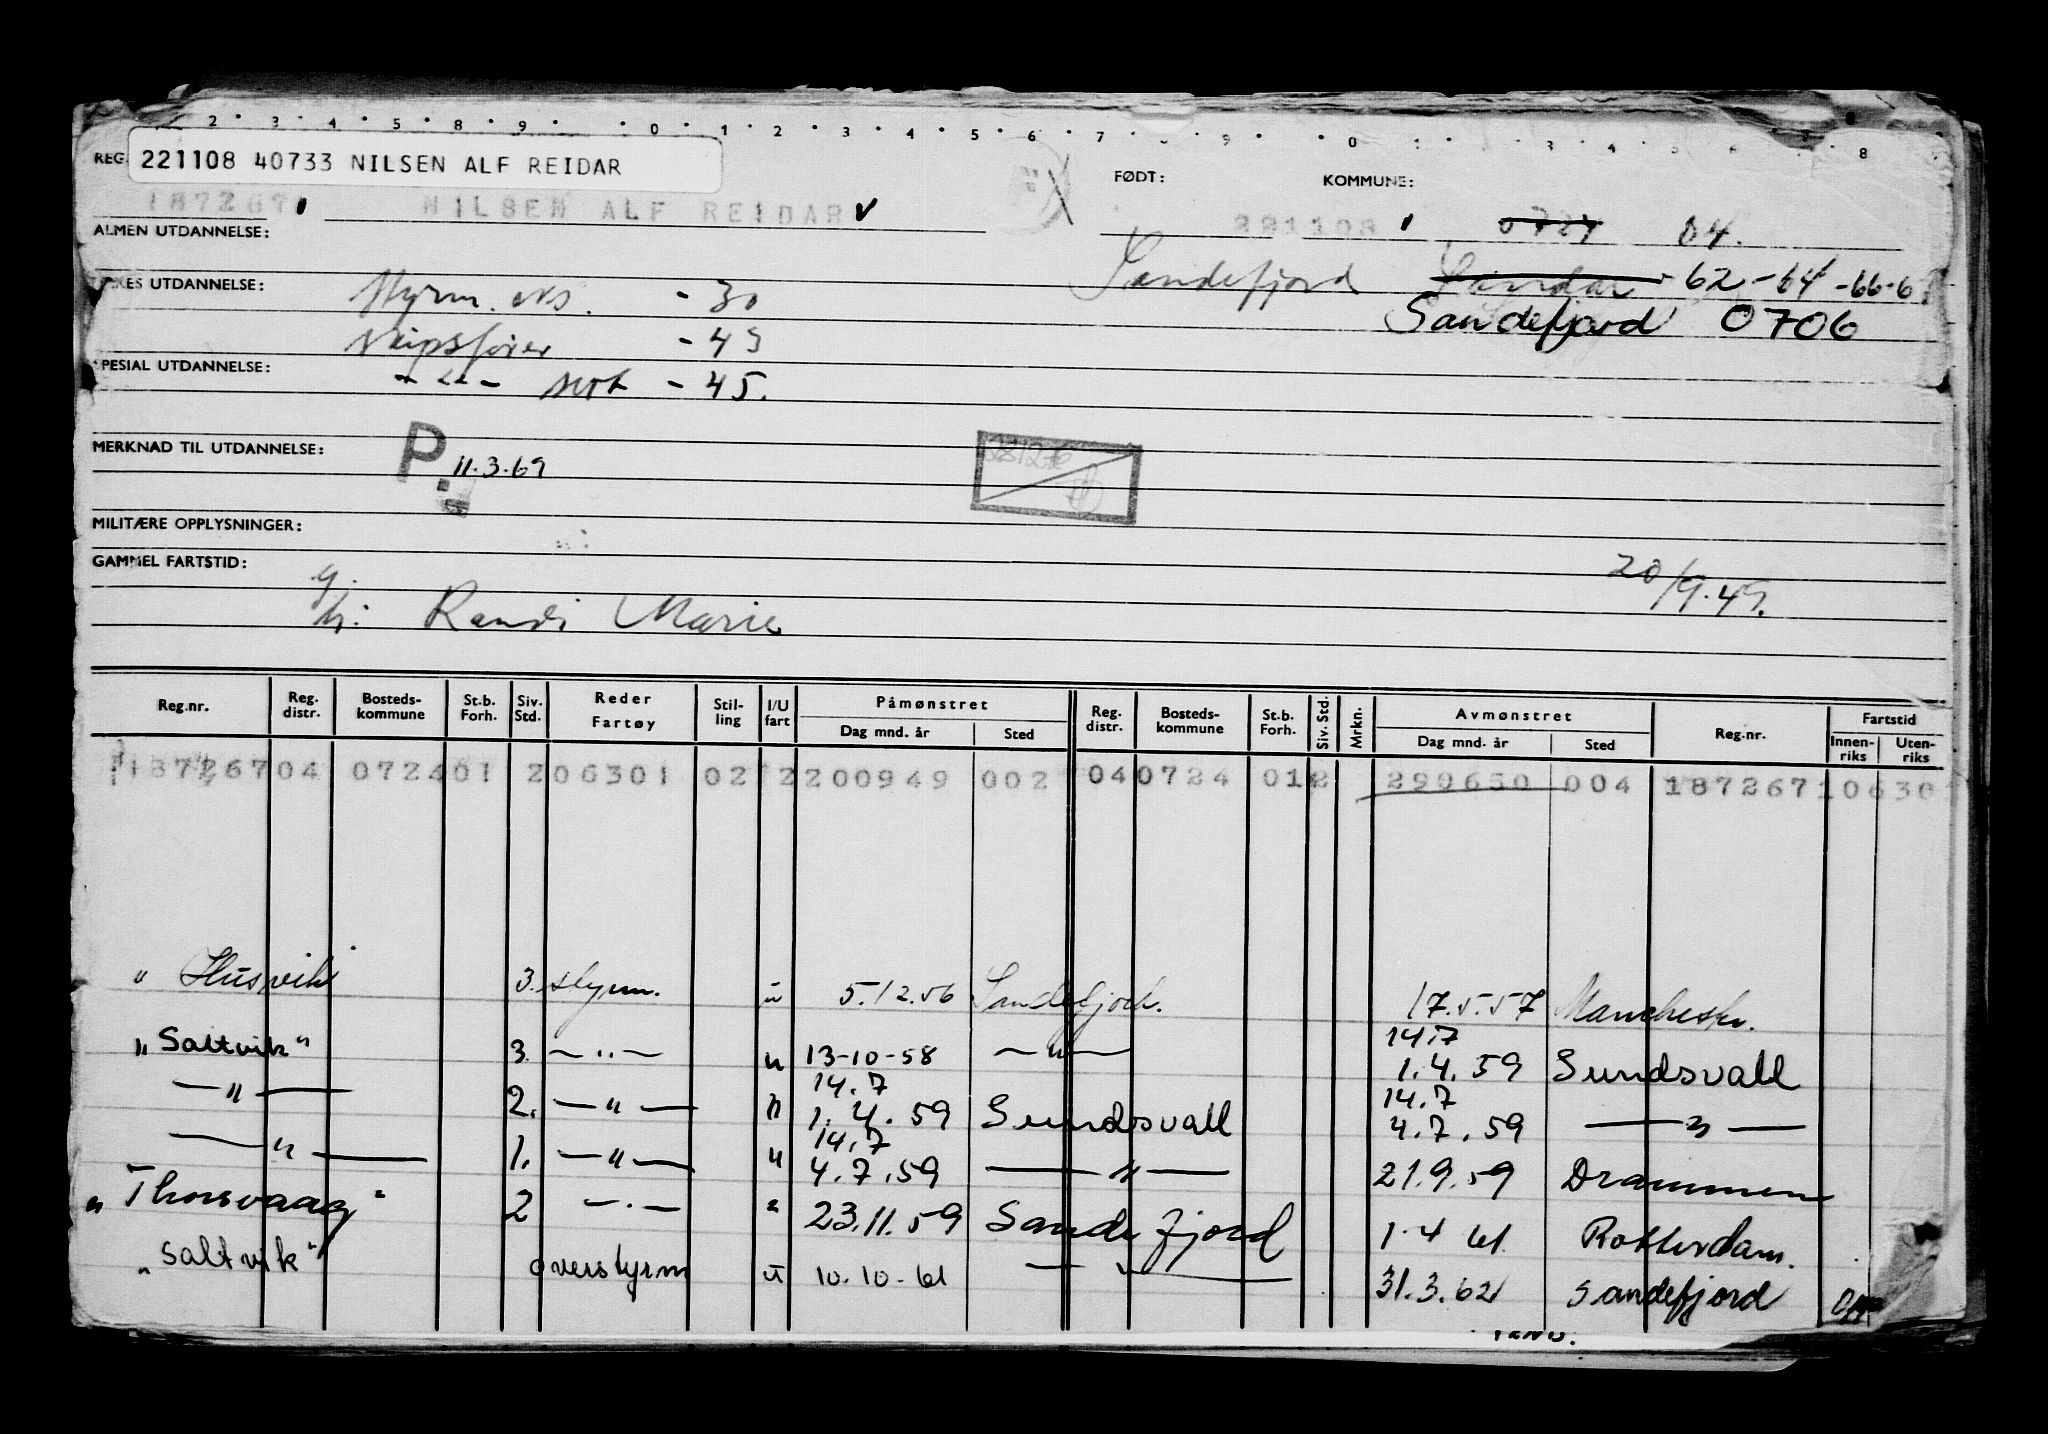 2 3 4 5 8 9 0 1 2 3 4 5 6 7 8 9 0 1 3 4 5 8
REG. 221108 40733 NILSEN ALF REIDAR FØDT: KOMMUNE:
187267 NILSEN ALF REIDAR 221108 0724 04.
ALMEN UTDANNELSE:
Sandefjord Sandar -62-64-66-6
UTDANNELSE: Styrm. eks. -30
Sandefjord 0706
skipsfører -43
SPESIAL UTDANNELSE: -"- sert -45.
MERKNAD TIL UTDANNELSE: P. 11.3.69
MILITÆRE OPPLYSNINGER:
GAMMEL FARTSTID: g. 20/9.49.
h: Randi Marie
Reg.nr. Reg. distr. Bosteds-kommune St.b. Forh. Siv. Std. Reder Fartøy Stil-ling I/U fart Påmønstret Dag mnd. år Sted Reg. distr. Bosteds-kommune St.b. Forh. Siv. Std. Mrkn. Avmønstret Dag mnd. år Sted Reg.nr. Fartstid Innen-riks Uten-riks
187267 04 0724 01 2 06301 02 2 200949 002 04 0724 01 2 290650 004 187267 10630
" Husvik 3. styrm. u 5.12.56 Sandefjord. 17.5.57 Manchester.
14.7
" Saltvik" 3. —"— u 13-10-58 —"— 1.4.59 Sundsvall
14.7 14.7
—"— 2. —"— " 1.4.59 Sundsvall 4.7.59 —"—
14.7
—"— 1. —"— " 4.7.59 —"— 21.9.59 Drammen
" Thorsvaag" 2 —"— " 23.11.59 Sandefjord 1-4 61. Rotterdam.
" Saltvik" overstyrm u 10.10-61 —"— 31.3.62 Sandefjord